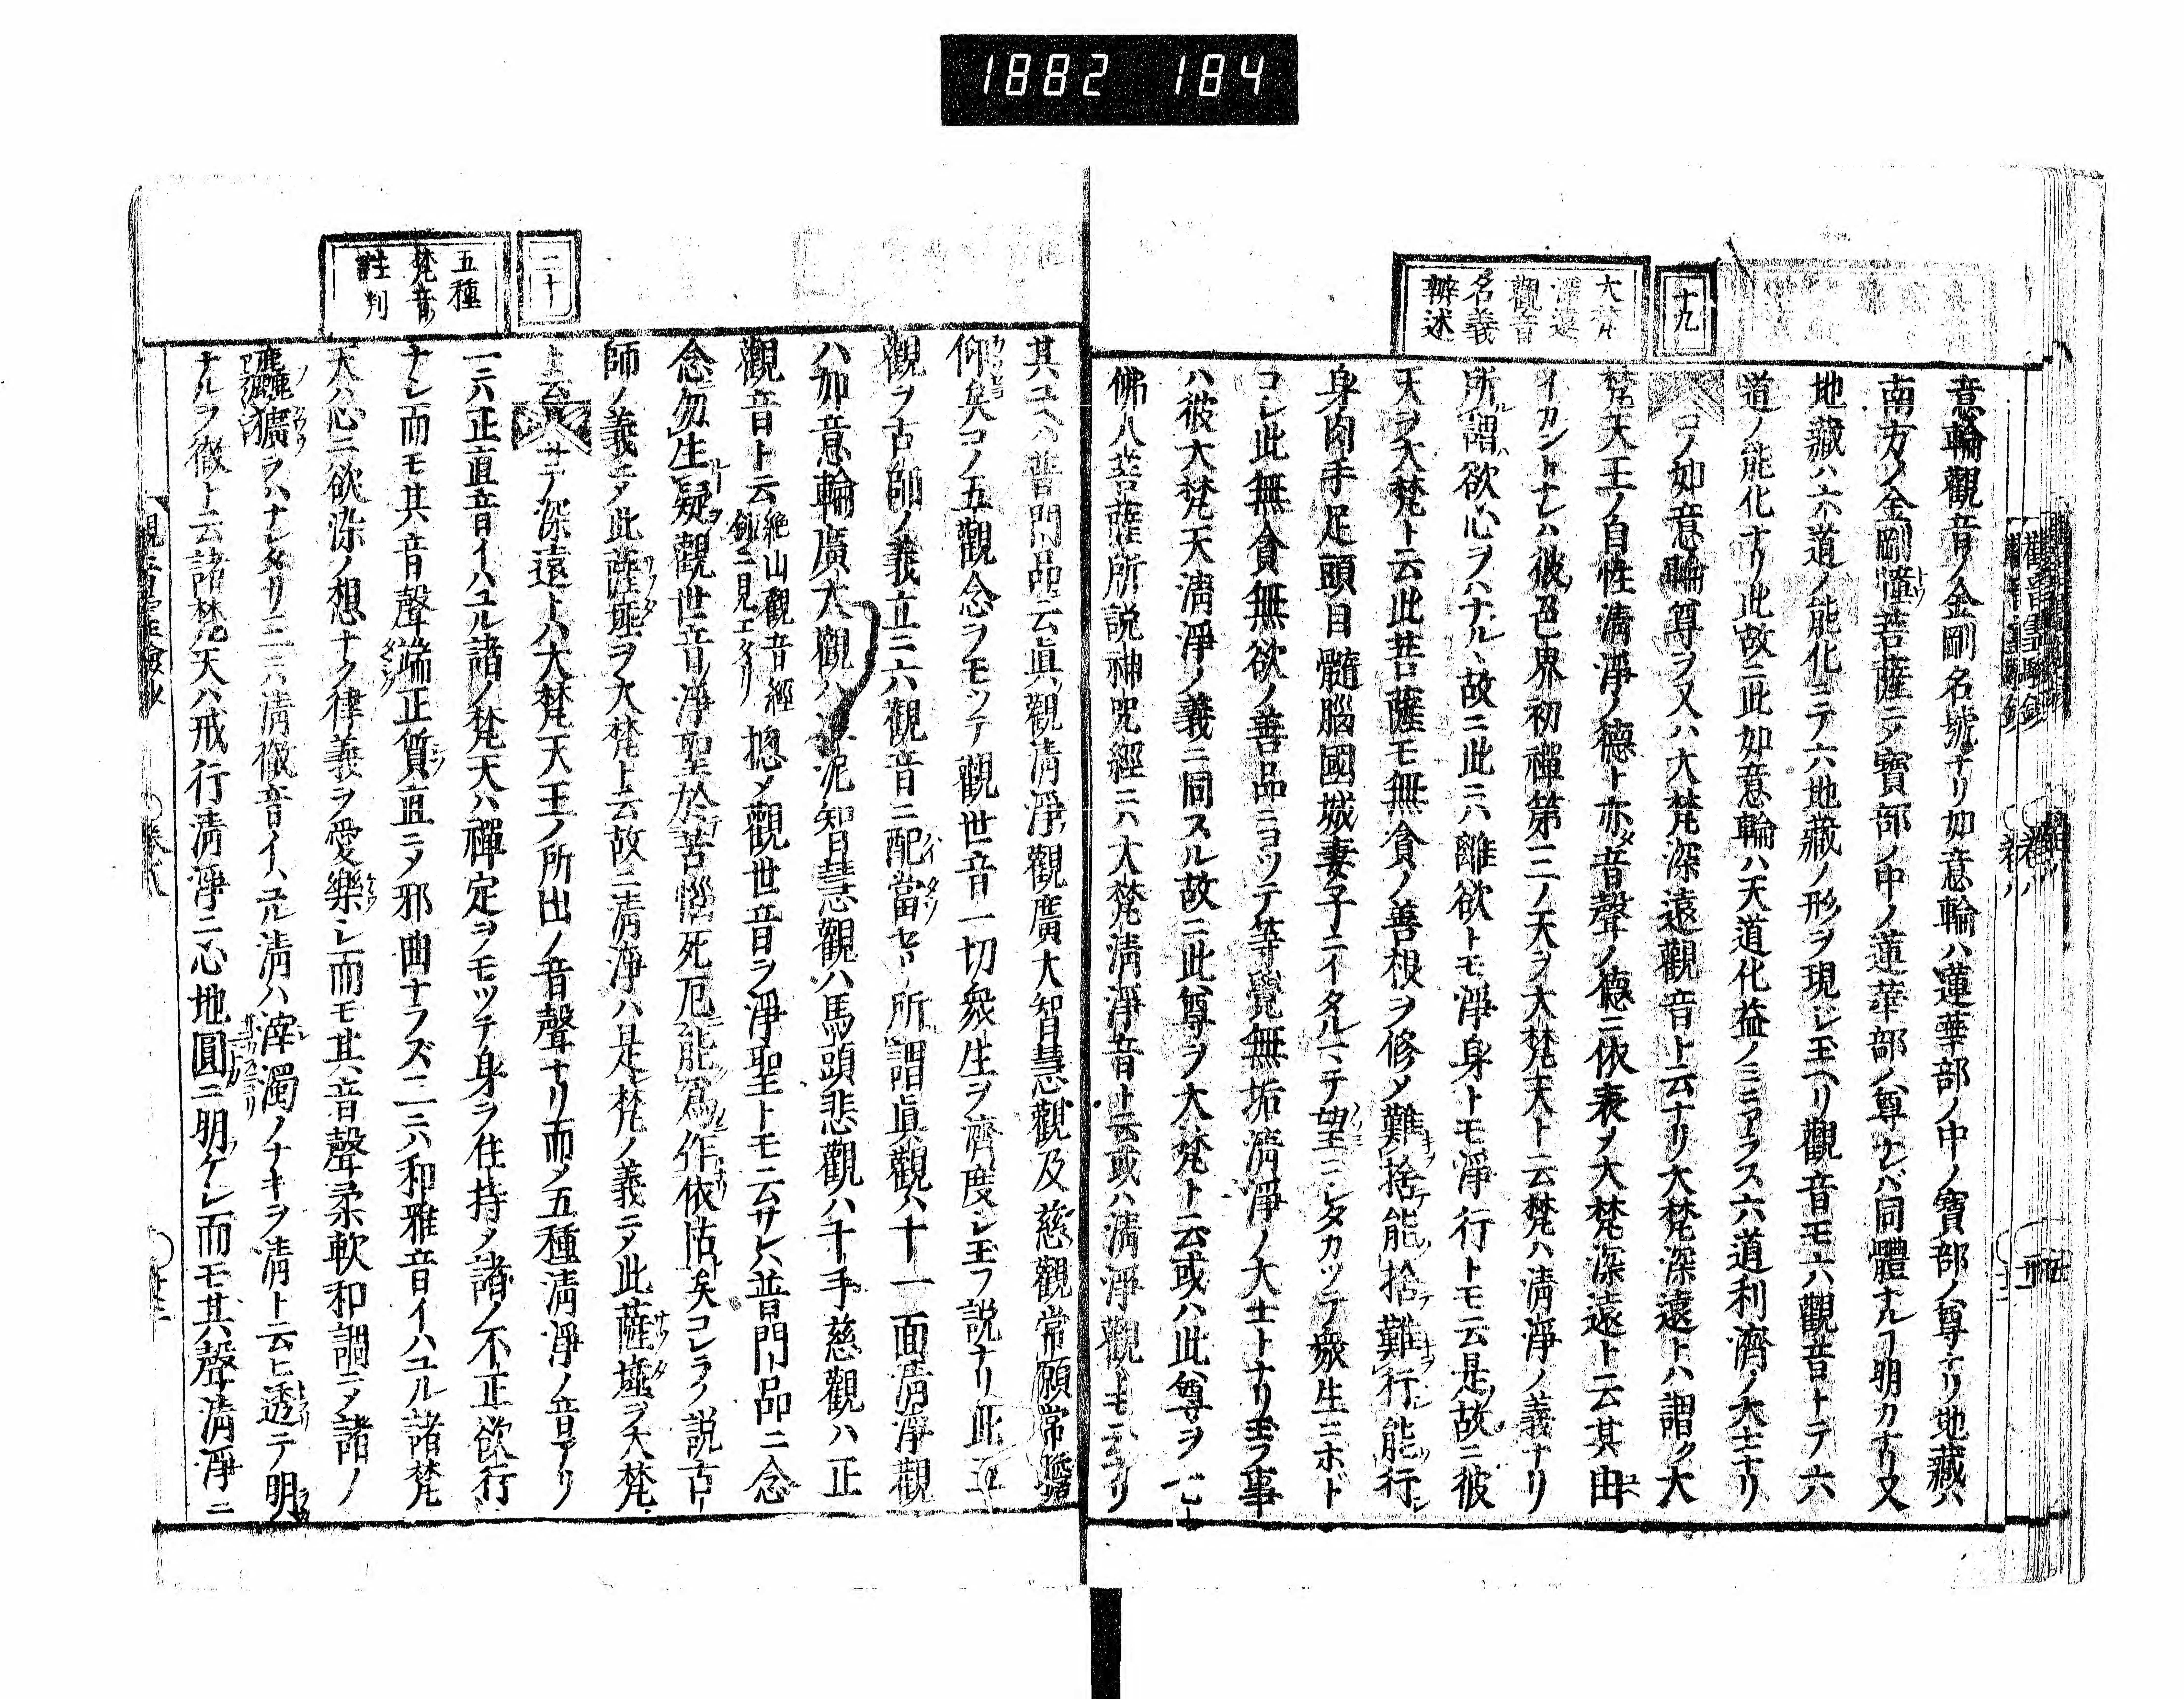 1882 184
十九
大梵
深遠
觀音
名義
辨述
意輪觀音ノ金剛名號ナリ如意輪ハ蓮華部ノ中ノ寶部ノ尊ナリ地藏ハ
南方ノ金剛幢菩薩ニメ寶部ノ中ノ蓮華部ノ尊ナレバ同體ナルヿ明カナリ又
地藏ハ六道ノ能化ニテ六地藏ノ形ヲ現レ玉ヘリ觀音モ六觀音トテ六
道ノ能化ナリ此故ニ此如意輪ハ天道化益ノミニアラス六道利濟ノ大士ナリ
コノ如意輪尊ヲ又ハ大梵深遠觀音ト云ナリ大梵深遠トハ謂ク大
梵天王ノ自性清淨ノ德ト亦音聲ノ德ニ依表メ大梵深遠ト云其由
イカントナレハ彼色界初禪第三ノ天ヲ大梵天ト云梵ハ清淨ノ義ナリ
所謂欲心ヲハナル、故ニ此ニハ離欲トモ淨身トモ淨行トモ云是故ニ彼
天ヲ大梵ト云此菩薩モ無貪ノ善根ヲ修メ難捨能捨難行能行
身肉手足頭目髓腦國城妻子ニイタルマテ望ミシタカツテ衆生ニホド
コシ此無貪無欲ノ善品ニヨツテ等覺無垢清淨ノ大士トナリ玉フ事
ハ彼大梵天清淨ノ義ニ同スル故ニ此尊ヲ大梵ト云或ハ此尊ヲ
佛八菩薩所説神呪經ニハ大梵清淨音ト云或ハ清淨觀トモ云ヘリ
二十
五種
梵音
註判
其ユヘハ普門品云眞觀清淨觀廣大智慧觀及慈觀常願常瞻
仰矣コノ五觀念ヲモツテ觀世音一切衆生ヲ濟度シ玉フ説ナリ此五
觀ヲ古師ノ義立ニ六觀音ニ配當セリ所謂眞觀ハ十一面清淨觀
ハ如意輪廣大觀ハ准泥智慧觀ハ馬頭悲觀ハ千手慈觀ハ正
觀音ト云 絶山觀音經鈔ニ見エタリ 摠メ觀世音ヲ淨聖トモ云サレハ普門品ニ念
念勿生疑觀世音淨聖於苦惱死厄能爲作依怙矣コレラノ説古
師ノ義ニテ此薩埵ヲ大梵ト云故ニ清淨ハ是梵ノ義ニテ此薩埵ヲ大梵
ト云 サテ深遠トハ大梵天王ノ所出ノ音聲ナリ而メ五種清淨ノ音アリ
一ニハ正直音イハユル諸ノ梵天ハ禪定ヲモツテ身ヲ住持メ諸ノ不正欲行
ナシ而モ其音聲端正質直ニメ邪曲ナラズ二ニハ和雅音イハユル諸梵
天ハ心ニ欲染ノ想ナク律義ヲ愛樂シ而モ其音聲柔軟和調ニメ諸ノ
麤獷ヲハナレタリ三ニハ清徹音イハユル清ハ滓濁ノナキヲ清ト云ヒ透テ明
ナルヲ徹ト云諸梵天ハ戒行清淨ニ心地圓ニ明ケレ而モ其聲清淨ニ